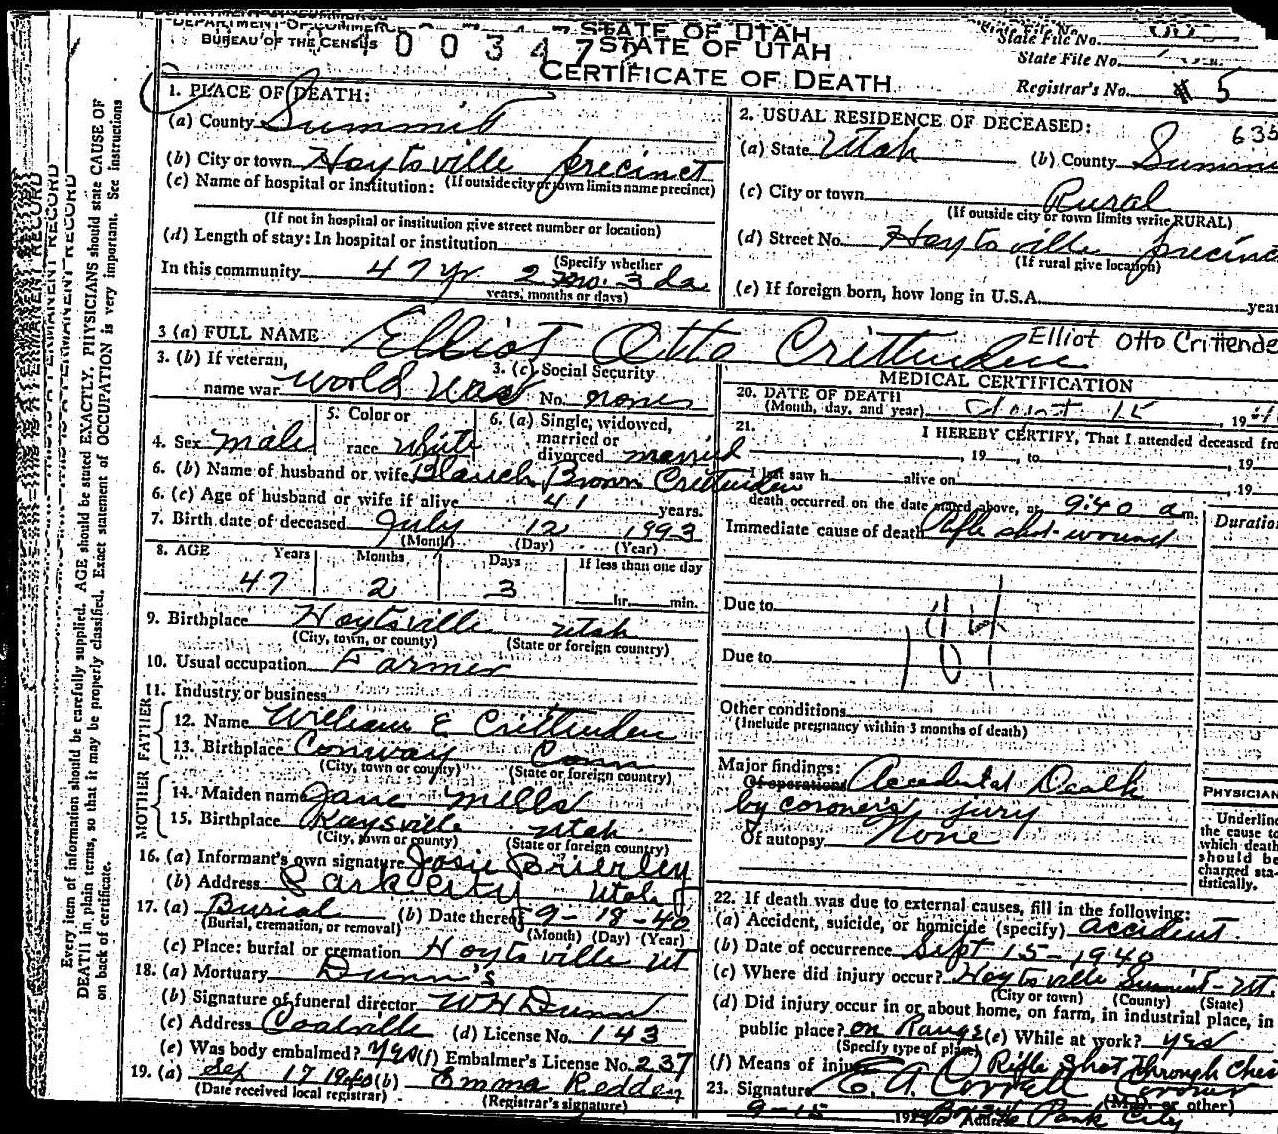 DEPARTMENT OF COMMERCE
BUREAU OF THE CENSUS
0 0 3 4 7
STATE OF UTAH
STATE OF UTAH
CERTIFICATE OF DEATH
State File No.
State File No.
State File No.
Registrar's No. 5
Every item of information should be carefully supplied. AGE should be stated EXACTLY. PHYSICIANS should state CAUSE OF
DEATH in plain terms, so that it may be properly classified. Exact statement of OCCUPATION is very important. See instructions
on back of certificate.
1. PLACE OF DEATH:
(a) County Summit
(b) City or town Hoytsville precinct
(If outside city or town limits name precinct)
(c) Name of hospital or institution:
(If not in hospital or institution give street number or location)
(d) Length of stay: In hospital or institution
(Specify whether
In this community 47 yr. 2 mo. 3 da.
years, months or days)
2. USUAL RESIDENCE OF DECEASED: 635
(a) State Utah (b) County Summi
(c) City or town Rural
(If outside city or town limits write RURAL)
(d) Street No. Hoytsville precinc
(If rural give location)
(e) If foreign born, how long in U.S.A. year
3 (a) FULL NAME Elliot Otto Crittenden Elliot Otto Crittende
3. (b) If veteran, name war World War
3. (c) Social Security No. none
4. Sex male
5. Color or race white
6. (a) Single, widowed, married or divorced married
6. (b) Name of husband or wife Blanch Brown Crittenden
6. (c) Age of husband or wife if alive 41 years.
7. Birth date of deceased July 12 1893
(Month) (Day) (Year)
8. AGE Years Months Days If less than one day
47 2 3 hr. min.
9. Birthplace Hoytsville Utah
(City, town, or county) (State or foreign country)
10. Usual occupation Farmer
11. Industry or business
FATHER
12. Name William E Crittenden
13. Birthplace Conway Conn
(City, town or county) (State or foreign country)
MOTHER
14. Maiden name Jane Mills
15. Birthplace Kaysville Utah
(City, town or county) (State or foreign country)
16. (a) Informant's own signature Josie Brierley
(b) Address Park City Utah
17. (a) Burial (b) Date thereof 9-18-40
(Burial, cremation, or removal) (Month) (Day) (Year)
(c) Place: burial or cremation Hoytsville Ut
18. (a) Mortuary Dunn's
(b) Signature of funeral director W H Dunn
(c) Address Coalville (d) License No. 143
(e) Was body embalmed? yes (f) Embalmer's License No. 237
19. (a) Sep 17 1940 (b) Emma Redden
(Date received local registrar) (Registrar's signature)
MEDICAL CERTIFICATION
20. DATE OF DEATH
(Month, day, and year) Sept 15, 19
21. I HEREBY CERTIFY, That I attended deceased fro
, 19 , to , 19
I last saw h alive on , 19
death occurred on the date stated above, at 9:40 a m.
Immediate cause of death Rifle shot-wound
Duration
Due to
184
Due to
Other conditions
(Include pregnancy within 3 months of death)
Major findings:
Of operations Accidental Death
by coroners jury
Of autopsy None
PHYSICIAN
Underline
the cause to
which death
should be
charged sta-
tistically.
22. If death was due to external causes, fill in the following:
(a) Accident, suicide, or homicide (specify) accident.
(b) Date of occurrence Sept 15-1940
(c) Where did injury occur? Hoytsville Summit-Ut.
(City or town) (County) (State)
(d) Did injury occur in or about home, on farm, in industrial place, in
public place? on Range (e) While at work? yes
(Specify type of place)
(f) Means of injury Rifle Shot through Ches
23. Signature Coroner
(M.D. or other)
9-15 Address Park City